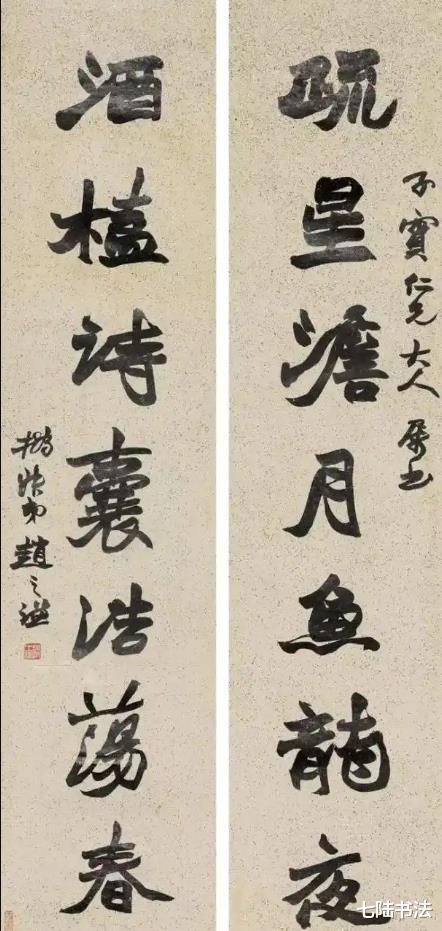 子寶仁兄大人屬書
疏星澹月魚龍夜
酒榼詩囊浩蕩春
撝叔弟趙之謙
七陆书法